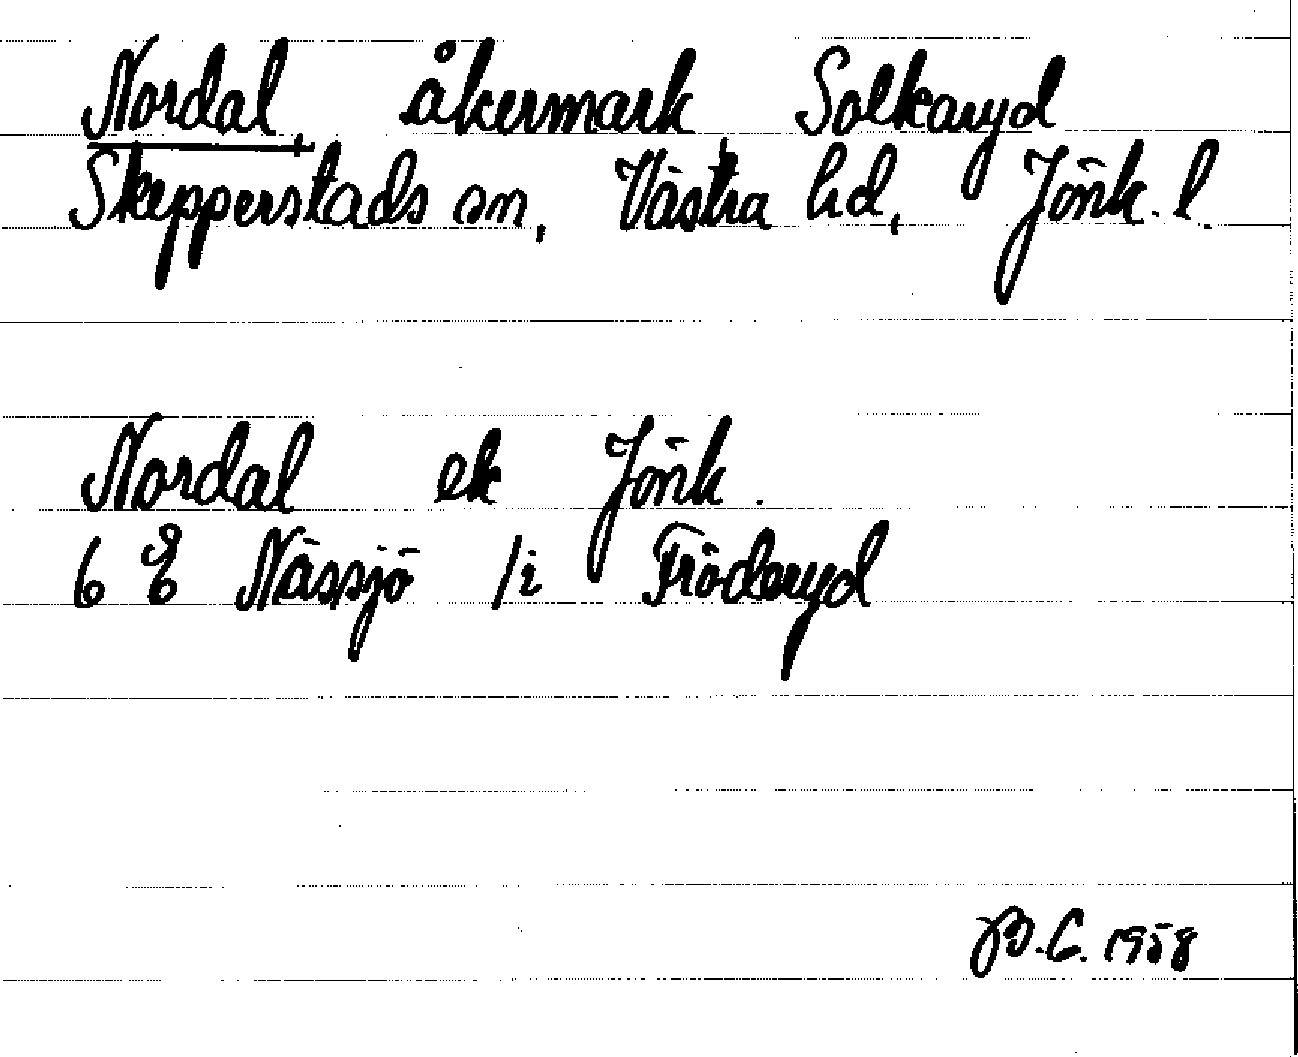 Nordal, åkermark Solkaryd
Skepperstads sn, Västra hd, Jönk. l.
Nordal ek Jönk.
6 E Nässjö /i Fröderyd
B.C. 1958